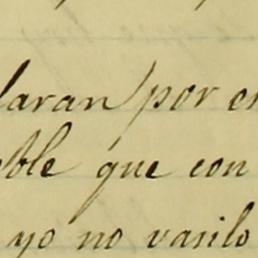 laran por es
oble que con
yo no vasilo